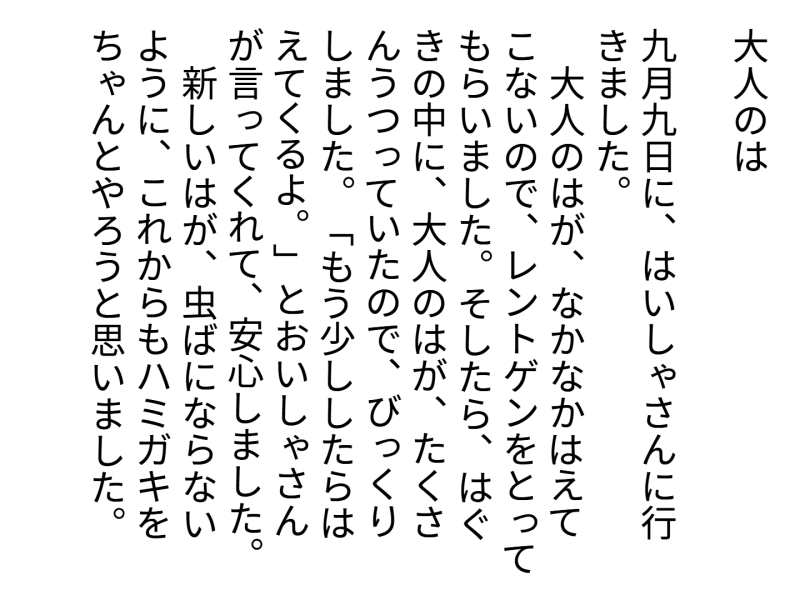 大人のは
九月九日に、はいしゃさんに行
きました。
　大人のはが、なかなかはえて
こないので、レントゲンをとって
もらいました。そしたら、はぐ
きの中に、大人のはが、たくさ
んうつっていたので、びっくり
しました。「もう少ししたらは
えてくるよ。」とおいしゃさん
が言ってくれて、安心しました。
　新しいはが、虫ばにならない
ように、これからもハミガキを
ちゃんとやろうと思いました。